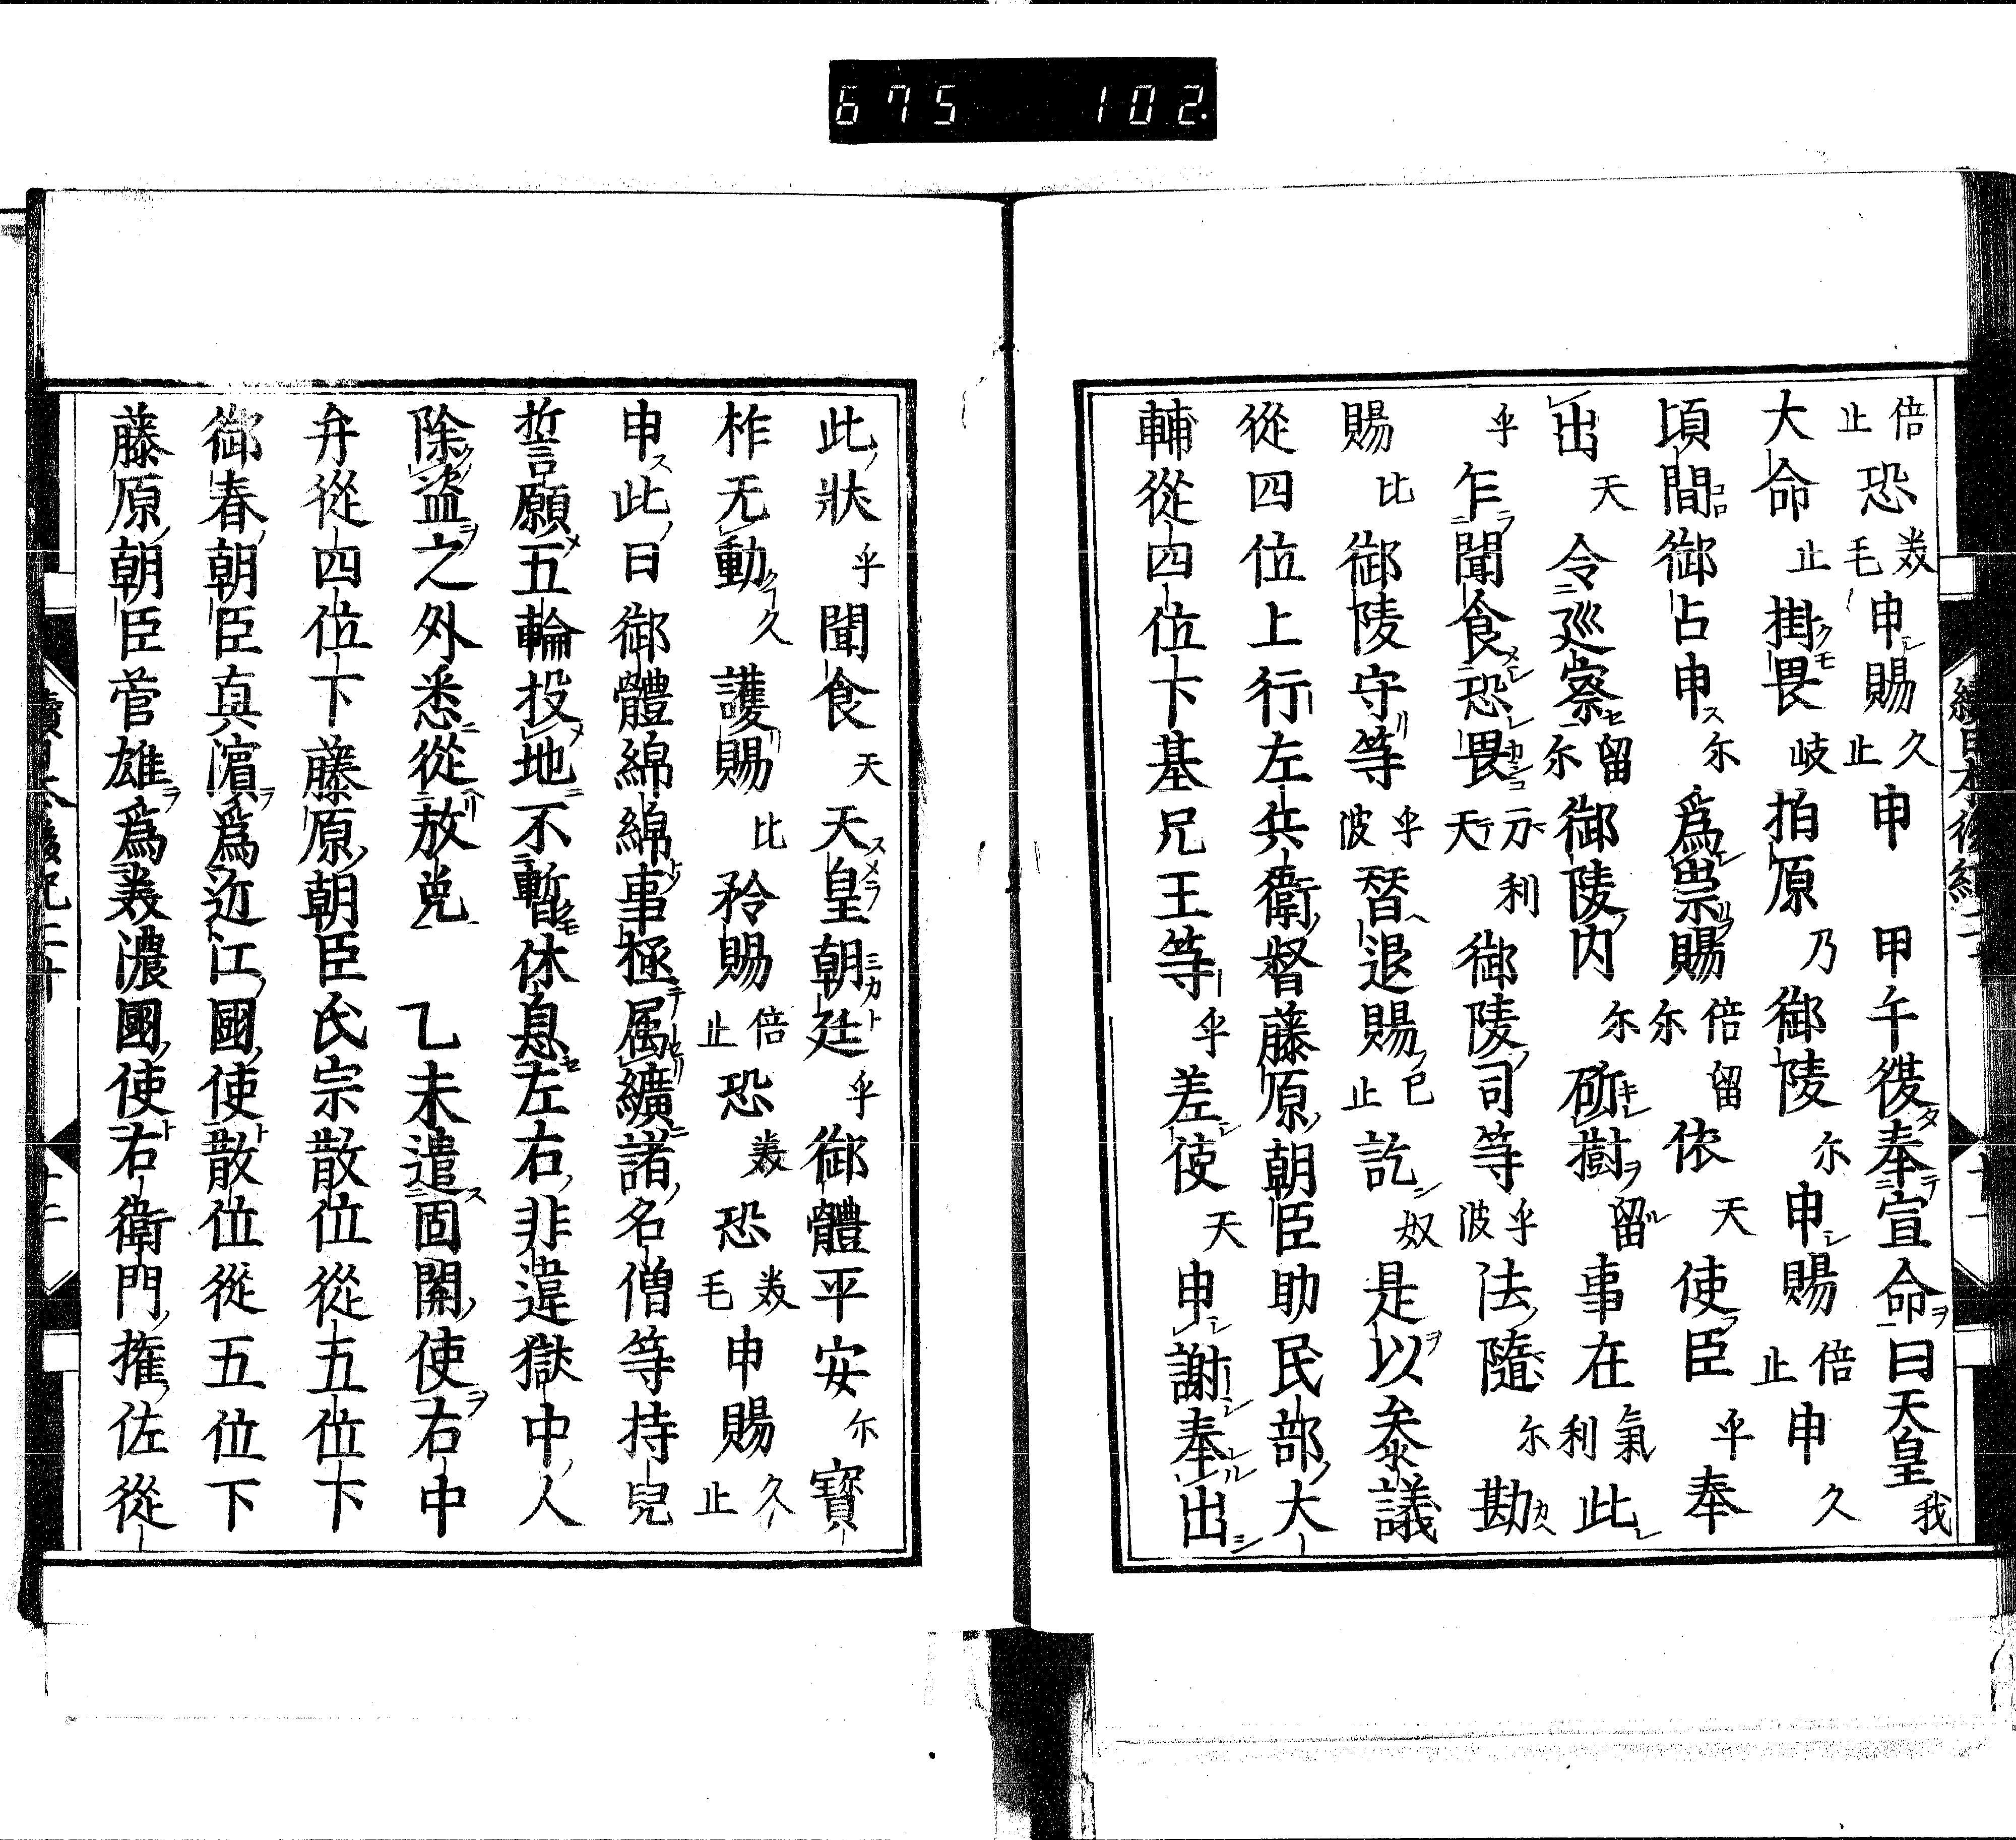 675 102.
倍止恐美毛申賜久止申 甲午復奉宣命曰天皇我
大命止掛畏岐柏原乃御陵尓申賜倍止申久
頃間御占申尓爲祟賜倍留尓依天使臣乎奉
出天令巡察尓留御陵内尓斫樹留事在氣利此
乎乍聞食恐畏天御陵司等乎波法隨尓勘
賜比御陵守等乎波替退賜已止訖奴是以參議
從四位上行左兵衛督藤原朝臣助民部大
輔從四位下基兄王等乎差使天申謝奉出
此狀乎聞食天天皇朝廷乎御體平安尓寶
柞无動久護賜比矜賜倍止恐美恐美毛申賜久止
申此日御體綿綿事極属纊諸名僧等持兒
誓願五輪投地不暫休息左右非違獄中人
除盗之外悉從放免 乙未遣固關使右中
弁從四位下藤原朝臣氏宗散位從五位下
御春朝臣真濵爲近江國使散位從五位下
藤原朝臣菅雄爲美濃國使右衛門権佐從